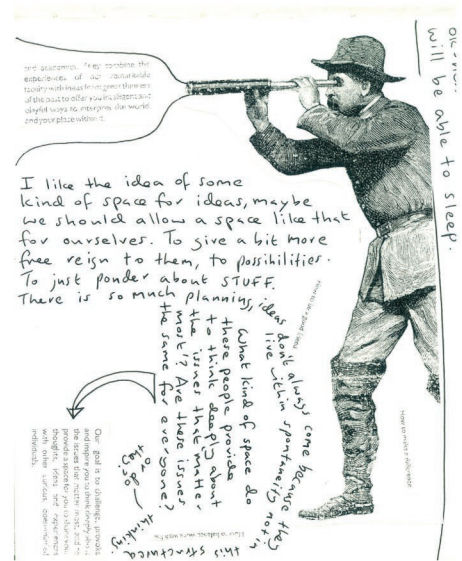 and academics. They combine the
experiences of our remarkable
faculty with ideas from great thinkers
of the past to offer you intelligent and
playful ways to interpret the world,
and your place within it.
will be able to sleep.
I like the idea of some
kind of space for ideas, maybe
we should allow a space like that
for ourselves. To give a bit more
free reign to them, to possibilities.
To just ponder about STUFF.
There is so much planning, ideas don't always come because they
live within spontaneity not in
this structured
thinking.
What kind of space do
these people provide
to think deeply about
the issues that matter
most? Are these issues
the same for everyone?
to do
this?
Our goal is to challenge, provoke
and inspire you to think deeply about
the issues that matter most, and to
provide a space for you to share your
thoughts, ideas and experiences
with other curious, open-minded
individuals.
How to make a difference